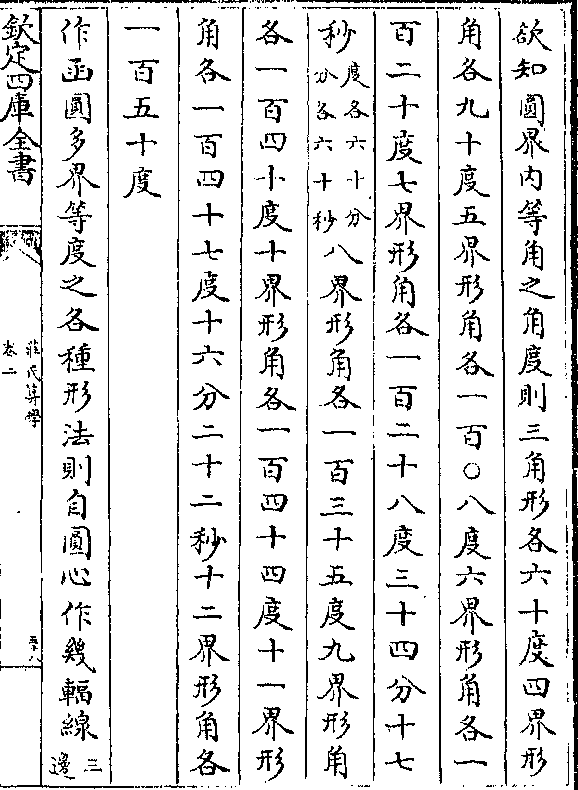 欲知圓界内等角之角度則三角形各六十度四界形
角各九十度五界形角各一百〇八度六界形角各一
百二十度七界形角各一百二十八度三十四分十七
秒度各六十分分各六十秒八界形角各一百三十五度九界形角
各一百四十度十界形角各一百四十四度十一界形
角各一百四十七度十六分二十二秒十二界形角各
一百五十度
作函圓多界等度之各種形法則自圓心作幾輻線三邊
欽定四庫全書
莊氏算學
卷二